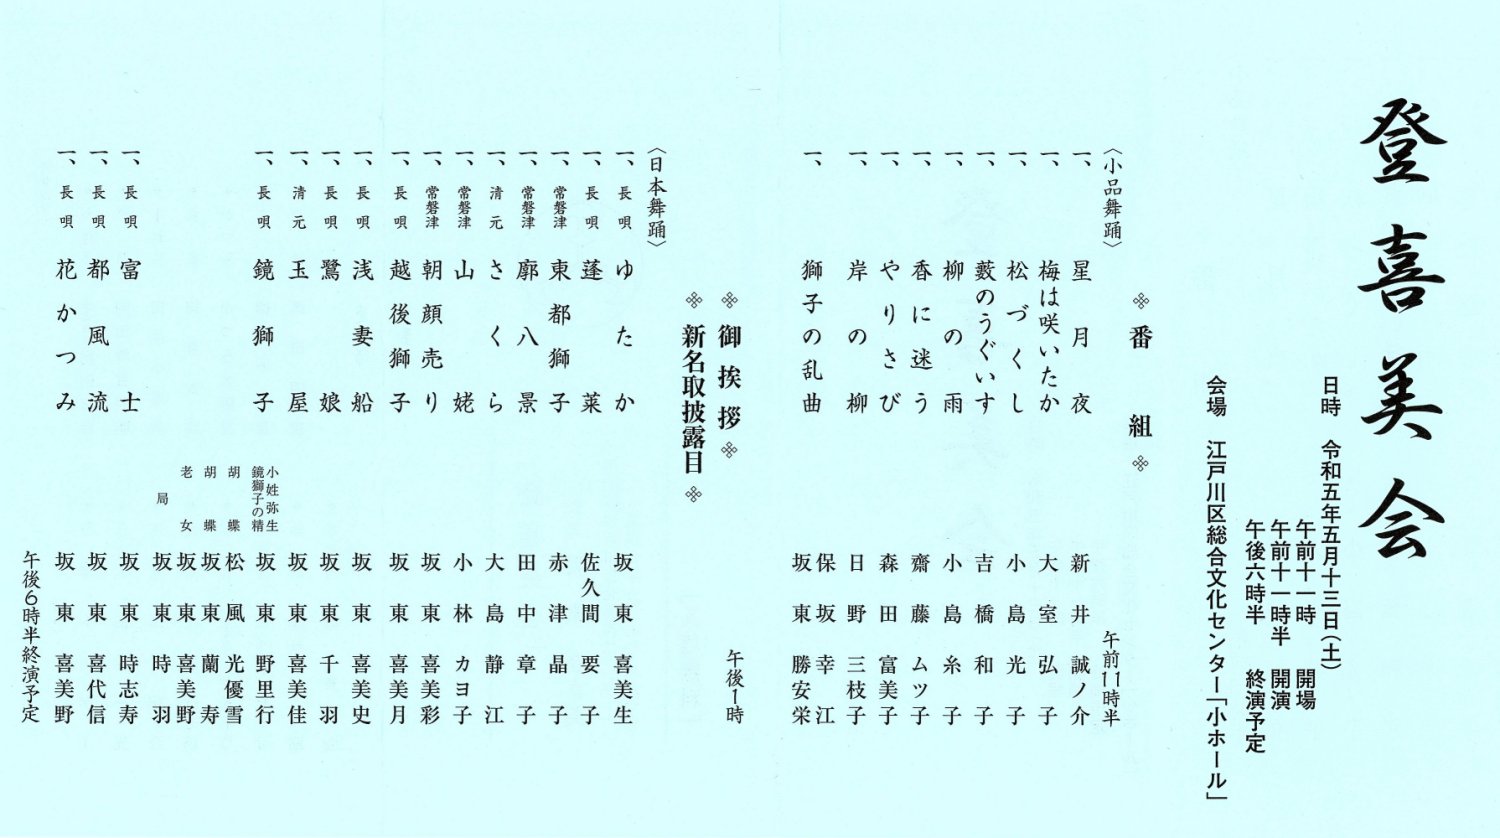 登喜美会
日時 令和五年五月十三日(土)
午前十一時 開場
午前十一時半 開演
午後六時半 終演予定
会場 江戸川区総合文化センター「小ホール」
番組
〈小品舞踊〉 午前11時半
一、星月夜 新井誠ノ介
一、梅は咲いたか 大室弘子
一、松づくし 小島光子
一、藪のうぐいす 吉橋和子
一、柳の雨 小島糸子
一、香に迷う 齋藤ムツ子
一、やりさび 森田富美子
一、岸の柳 日野三枝子
一、獅子の乱曲 保坂幸江
坂東勝安栄
御挨拶 午後1時
新名取披露目
〈日本舞踊〉
一、長唄 ゆたか 坂東喜美生
一、長唄 蓬莱 佐久間要子
一、常磐津 東都獅子 赤津晶子
一、常磐津 廓八景 田中章子
一、清元 さくら 大島静江
一、常磐津 山姥 小林カヨ子
一、常磐津 朝顔売り 坂東喜美彩
一、長唄 越後獅子 坂東喜美月
一、長唄 浅妻船 坂東喜美史
一、長唄 鷺娘 坂東千羽
一、清元 玉屋 坂東喜美佳
一、長唄 鏡獅子 小姓弥生
鏡獅子の精 坂東野里行
胡蝶 松風光優雪
胡蝶 坂東蘭寿
老女 坂東喜美野
局 坂東時羽
一、長唄 富士 坂東時志寿
一、長唄 都風流 坂東喜代信
一、長唄 花かつみ 坂東喜美野
午後6時半終演予定